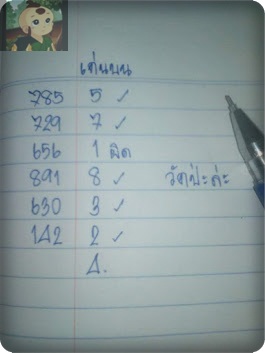 เด่นบน
785 5 ✓
729 7 ✓
656 1 ผิด
891 8 ✓ วัดป่ะค่ะ
630 3 ✓
142 2 ✓
4.